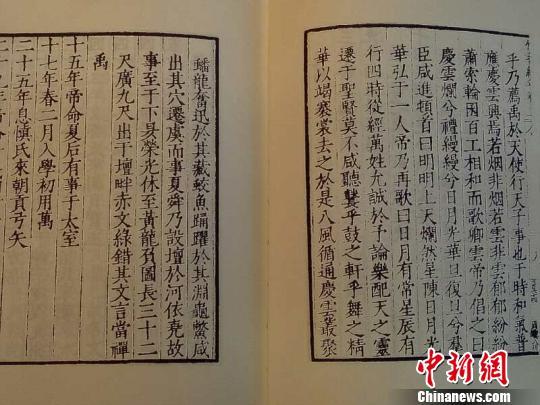 乎乃薦禹於天使行天子事也于時和氣普
應慶雲興焉若烟非烟若雲非雲郁郁紛紛
蕭索輪囷百工相和而歌卿雲帝乃倡之曰
慶雲爛兮禮縵縵兮日月光華旦復旦兮羣
臣咸進頓首曰明明上天爛然星陳日月光
華弘于一人帝乃再歌曰日月有常星辰有
行四時從經萬姓允誠於予論樂配天之靈
遷于聖賢莫不咸聽鼚乎鼓之軒乎舞之精
華以竭褰裳去之於是八風循通慶雲叢聚
蟠龍奮迅於其藏蛟魚踊躍於其淵龜鱉咸
出其穴遷虞而事夏舜乃設壇於河依堯故
事至于下昃榮光休至黃龍負圖長三十二
尺廣九尺出于壇畔赤文綠錯其文言當禪
禹
十五年帝命夏后有事于太室
十七年春二月入學初用萬
二十五年息慎氏來朝貢弓矢
中新网
www.chinanews.com